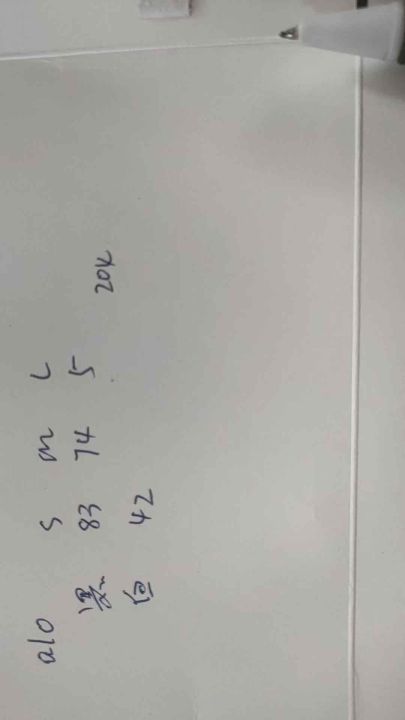 a10 S M L
黑 83 74 5 20K
白 42